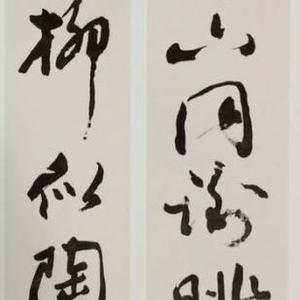 山同謝朓
柳似陶